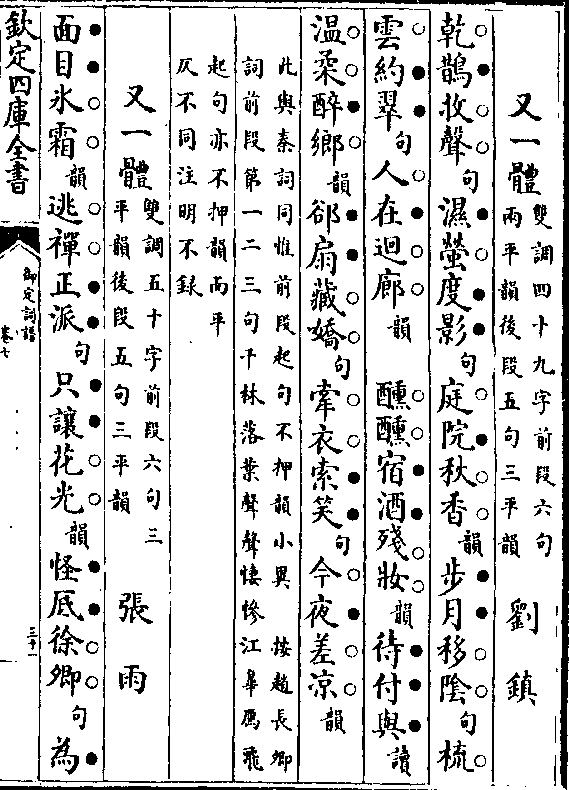 又一體 雙調四十九字前段六句
兩平韻後段五句三平韻 劉鎮
乾鵲收聲句濕螢度影句庭院秋香韻步月移陰句梳
雲約翠句人在迴廊韻 醺醺宿酒殘妝韻待付與讀
溫柔醉鄉韻郤扇藏嬌句牽衣索笑句今夜差涼韻
此與秦詞同惟前段起句不押韻小異 按趙長卿
詞前段第一二三句千林落葉聲聲悽慘江臯鴈飛
起句亦不押韻而平
仄不同注明不錄
又一體 雙調五十字前段六句三
平韻後段五句三平韻 張雨
面目氷霜韻逃禪正派句只讓花光韻怪底徐卿句為
欽定四庫全書
御定詞譜
卷七
三十一